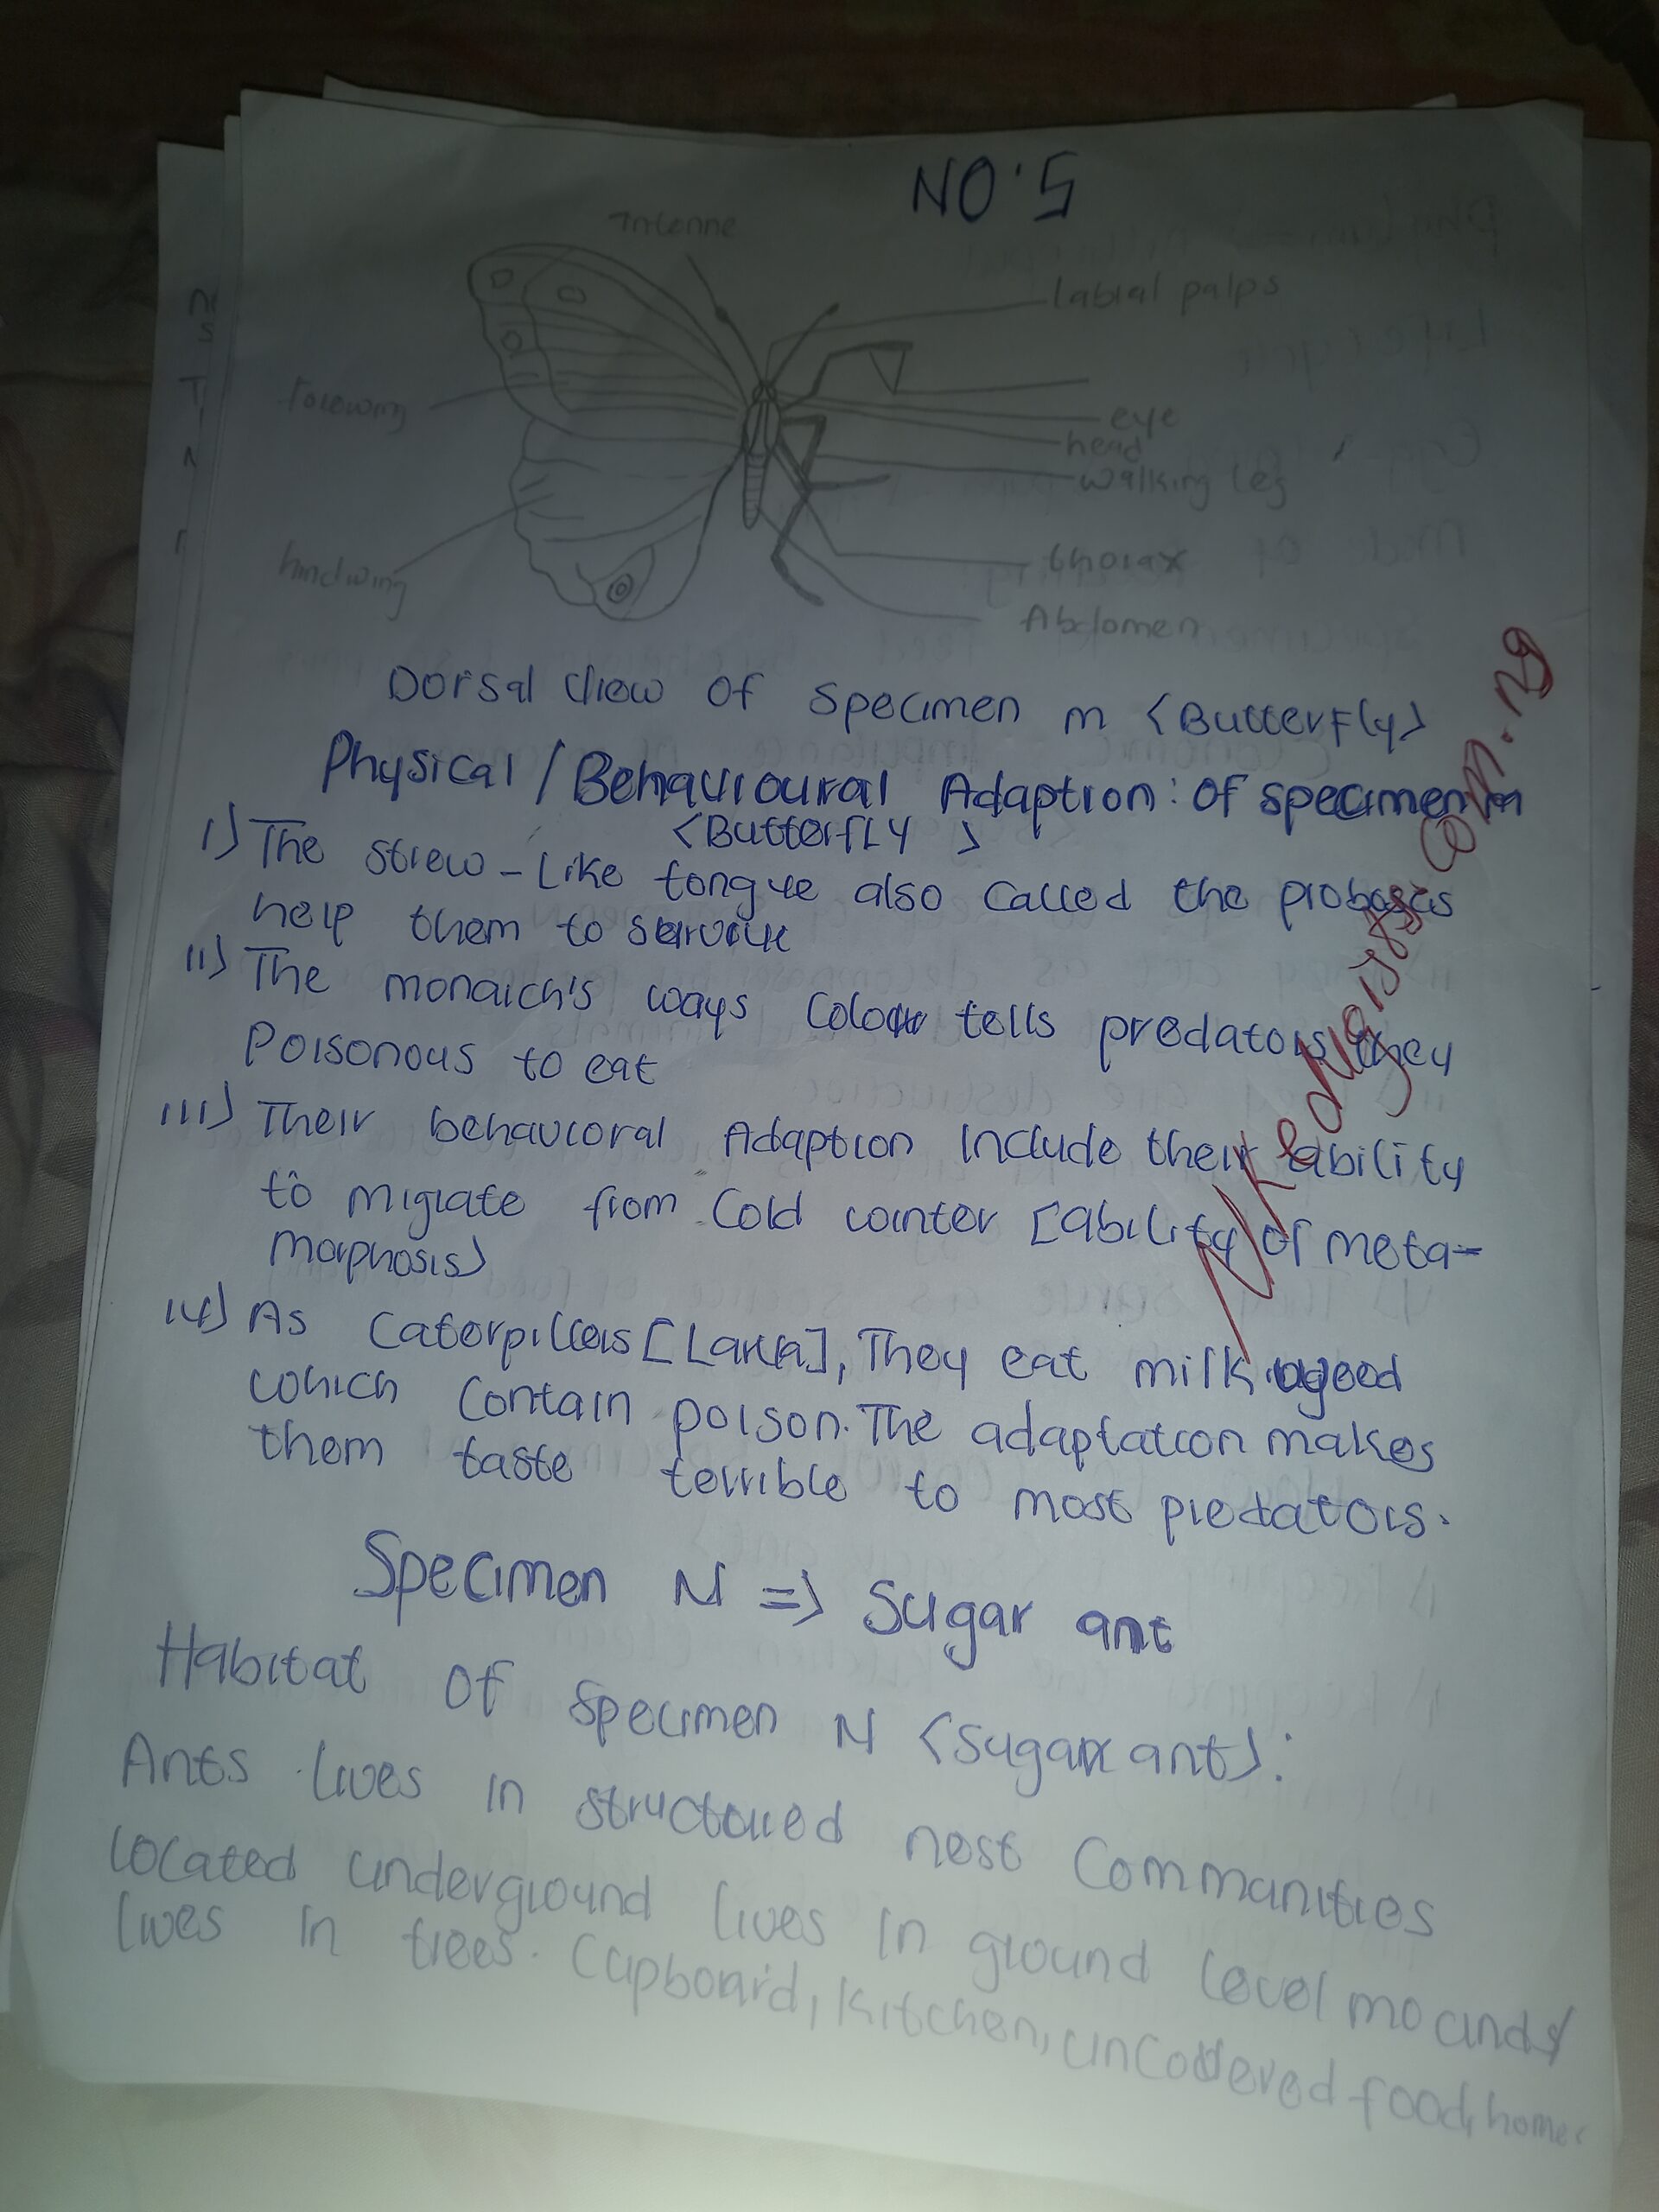 NO.5
Antenne
labial palps
forewing
eye
head
walking leg
hindwing
thorax
Abdomen
Dorsal view of specimen m <ButterFly>
Physical / Behavioural Adaption: of specimen m
<ButterfLY >
i) The strew-like tongue also called the proboscis
help them to survive
ii) The monarch's ways Colour tells predators they
Poisonous to eat
iii) Their behavioral Adaption Include their ability
to migrate from Cold winter [ability of meta-
morphosis)
iv) As Caterpillars [Larva], They eat milk weed
which contain poison. The adaptation makes
them taste terrible to most predators.
Specimen N => Sugar ant
Habitat of Specimen N <Sugar ant>:
Ants lives in structured nest Communities
located underground lives in ground level mounds/
lives in trees. Cupboard, Kitchen, uncovered food, home